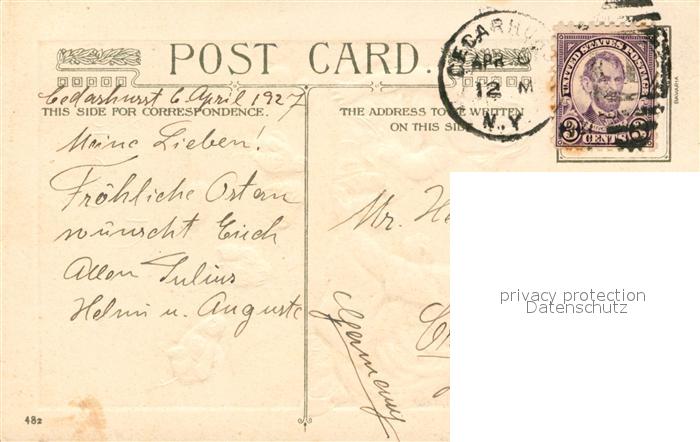 POST CARD.
CEDARHU
APR 6
12 M
N.Y.
UNITED STATES POSTAGE
3 CENTS 3
BAVARIA
Cedarhurst 6 April 1927
THIS SIDE FOR CORRESPONDENCE.
THE ADDRESS TO BE WRITTEN
ON THIS SIDE
Meine Lieben!
Fröhliche Ostern
wünscht Euch
Allen Julius
Helmi u. Auguste
Mr. He
Germany
privacy protection
Datenschutz
482